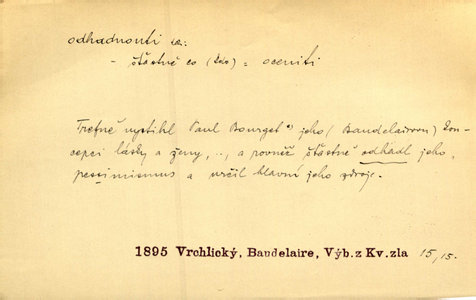 odhadnouti
- šťastně co = oceniti
Trefně vystihl Paul Bourget jeho (Baudelairovu) kon-
cepci lásky a ženy, .., a rovněž šťastně odhadl jeho
pessimismus a určil hlavní jeho zdroje.
1895 Vrchlický, Baudelaire, Výb. z Kv. zla 15, 15.